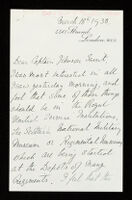 March 18th 1938.
Strand,
London, W.C.2
Dear Captain Johnson
I was most interested in all
your yesterday morning and
that some of those things
should be in the Royal
United Service Institution,
the Scottish National Military
Museum or Regimental Museums
which are being started
at the Depots of many
Regiments. I had the